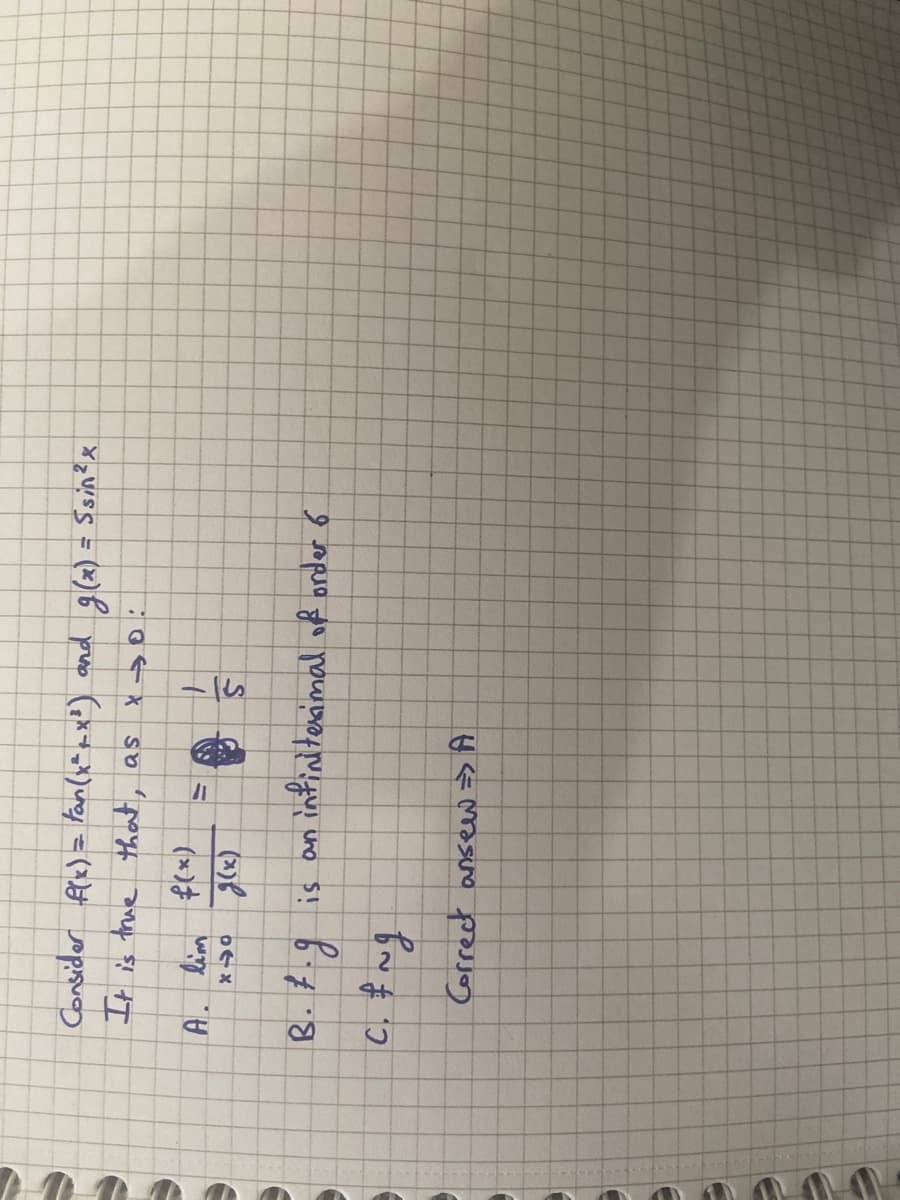 Consider f(x) = tan(x²+x³) and g(x) = 5sin²x
It is true that, as x → 0:
A. lim x→0 f(x)/g(x) = 1/5
B. f.g is an infinitesimal of order 6
C. f ~ g
Correct ansew => A